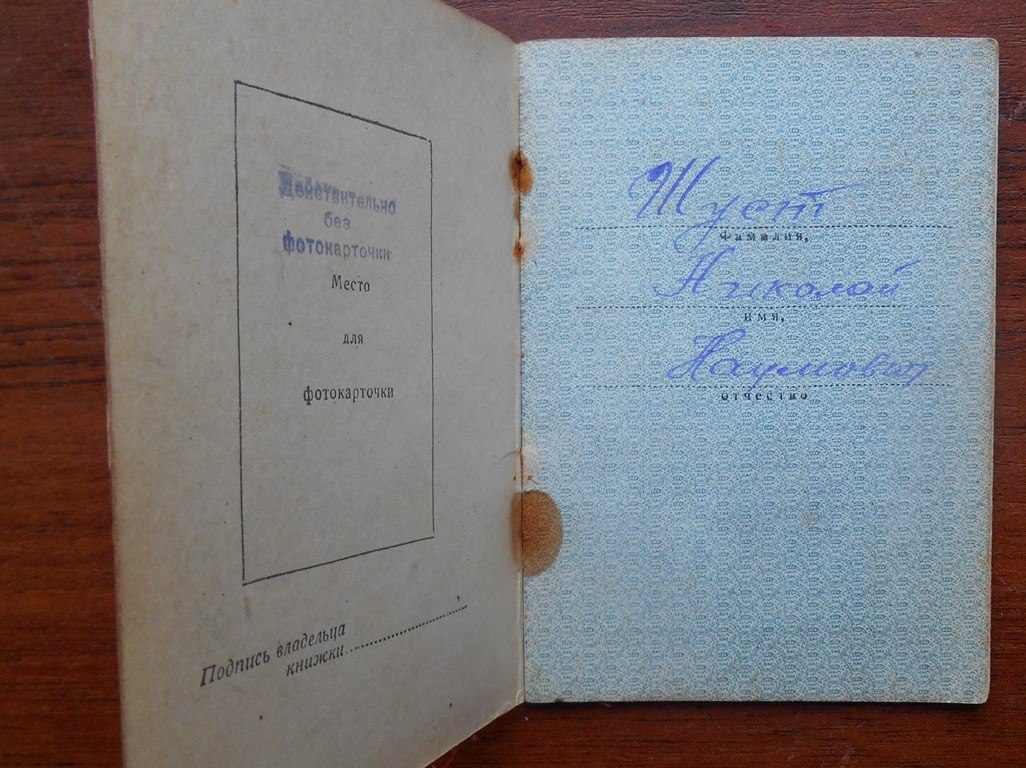 Действительно
без
фотокарточки
Место
для
фотокарточки
Подпись владельца
книжки
Шуст
Фамилия,
Николай
имя,
Наумович
отчество